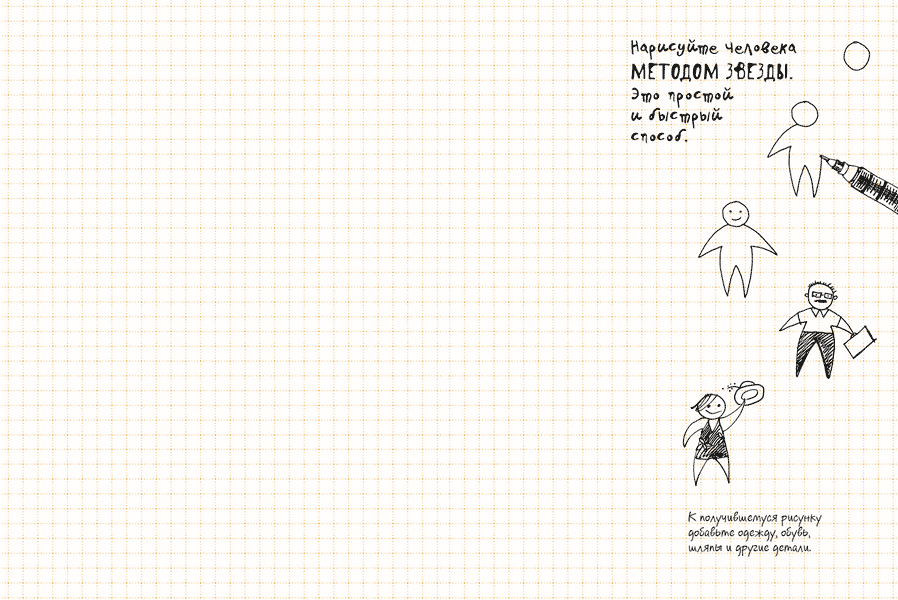 Нарисуйте человека
МЕТОДОМ ЗВЕЗДЫ.
Это простой
и быстрый
способ.
К получившемуся рисунку
добавьте одежду, обувь,
шляпы и другие детали.